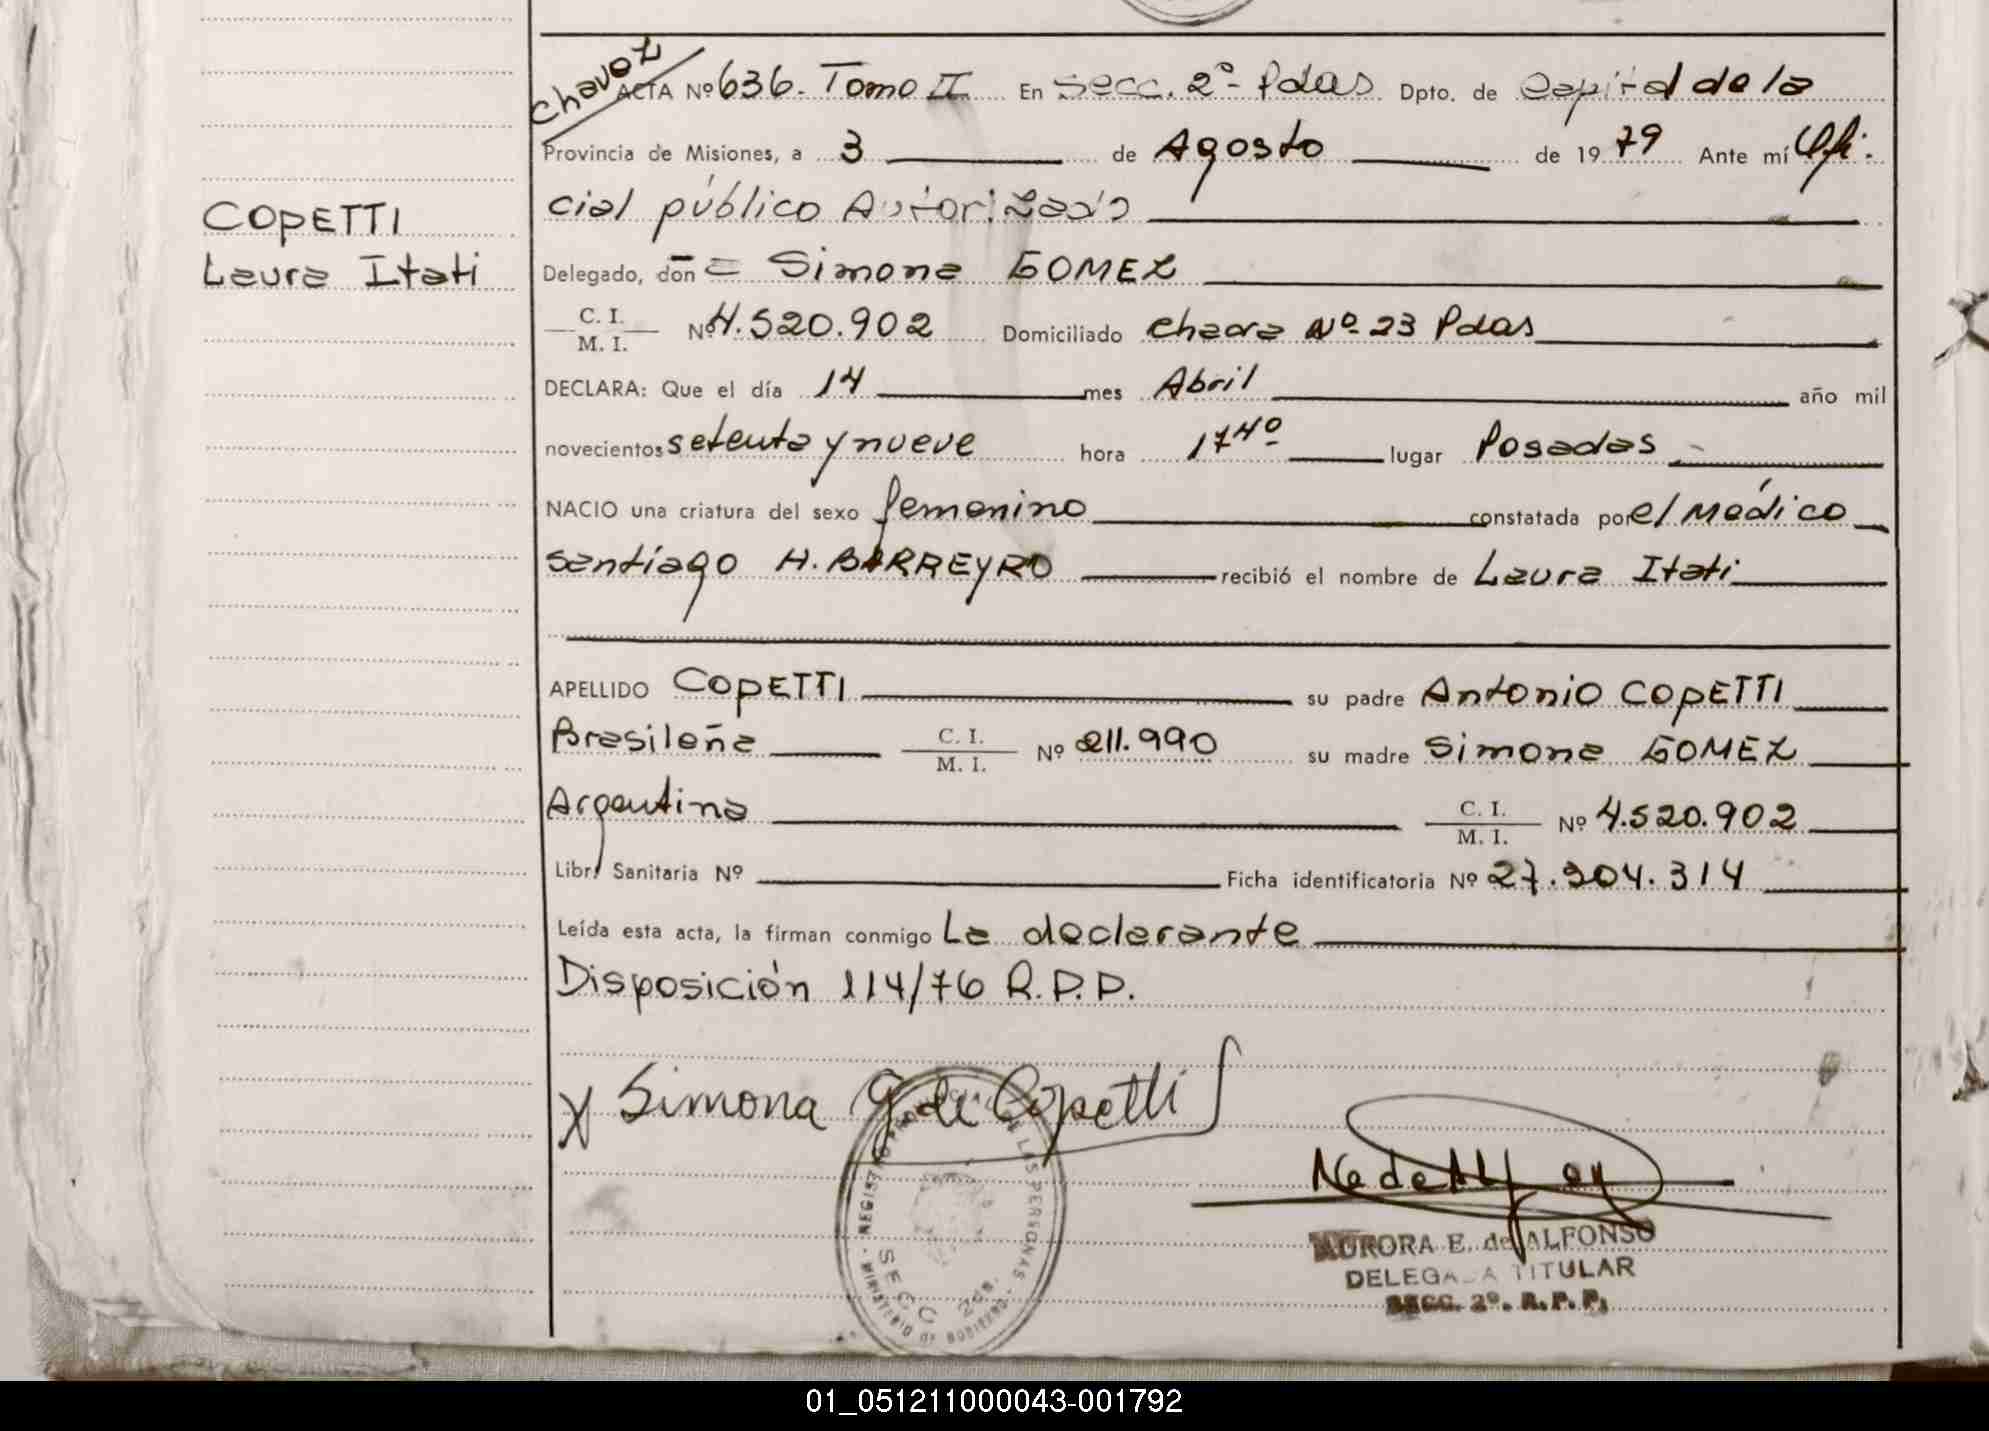 Chavez
ACTA Nº 636. Tomo II En Secc. 2º- Pdas Dpto. de Capital de la
Provincia de Misiones, a 3 de Agosto de 1979 Ante mí Ofi-
COPETTI
cial público Autorizado
Laura Itati
Delegado, don = Simona GOMEZ
C. I.
M. I.
Nº 4.520.902 Domiciliado chacra Nº 23 Pdas
DECLARA: Que el día 14 mes Abril año mil
novecientos setenta y nueve hora 17 40 lugar Posadas
NACIO una criatura del sexo femenino constatada por el Médico
Santiago H. BARREYRO recibió el nombre de Laura Itati
APELLIDO COPETTI su padre Antonio COPETTI
Brasileña C. I.
M. I.
Nº 211.990 su madre Simona GOMEZ
Argentina C. I.
M. I.
Nº 4.520.902
Libr. Sanitaria Nº Ficha identificatoria Nº 27.304.314
Leída esta acta, la firman conmigo La declarante
Disposición 114/76 R.P.P.
X Simona G de Copetti
REGISTRO PROVINCIAL DE LAS PERSONAS
MINISTERIO DE GOBIERNO
SECC 2da.
AURORA E. de ALFONSO
DELEGADA TITULAR
SECC. 2º. R. P. P.
01_051211000043-001792